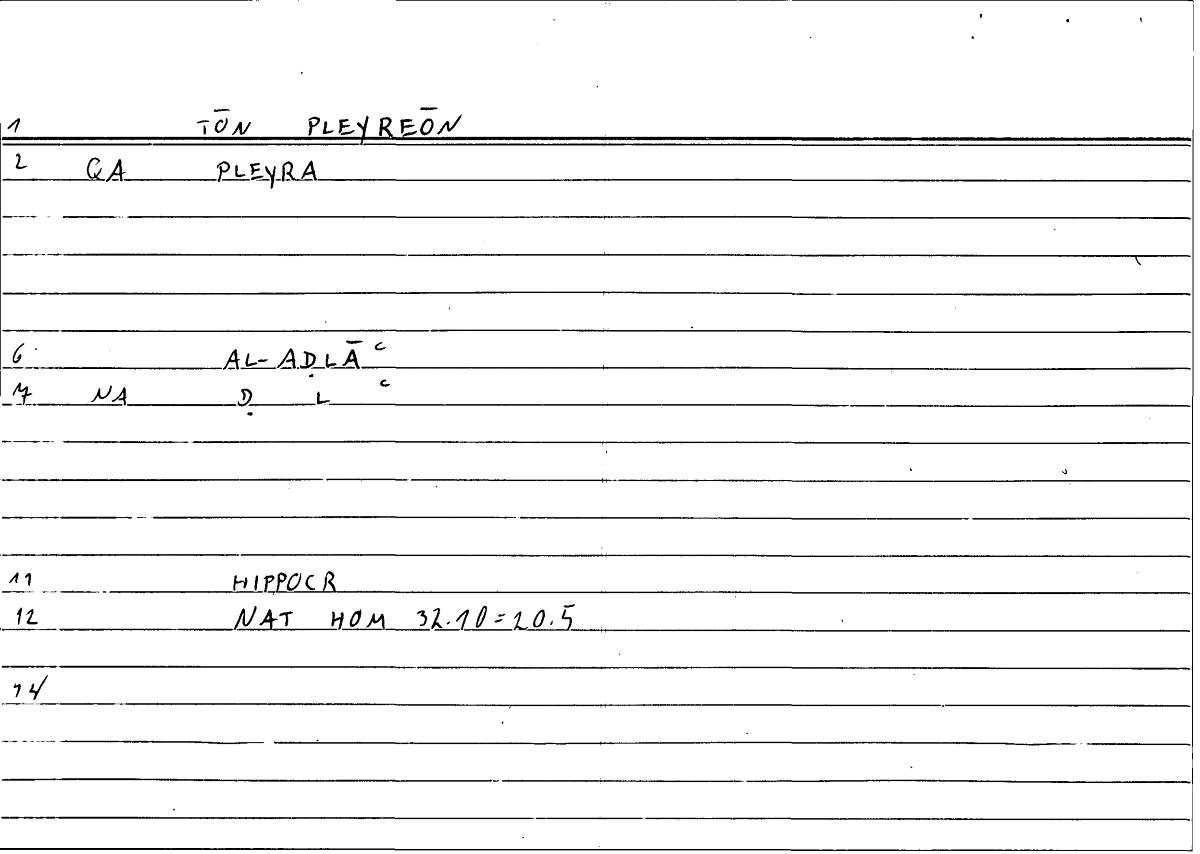 1 TŌN PLEYREŌN
2 QA PLEYRA
6 AL-ADḶĀʿ
7 NA Ḍ L ʿ
11 HIPPOCR
12 NAT HOM 32.10=20.5
14